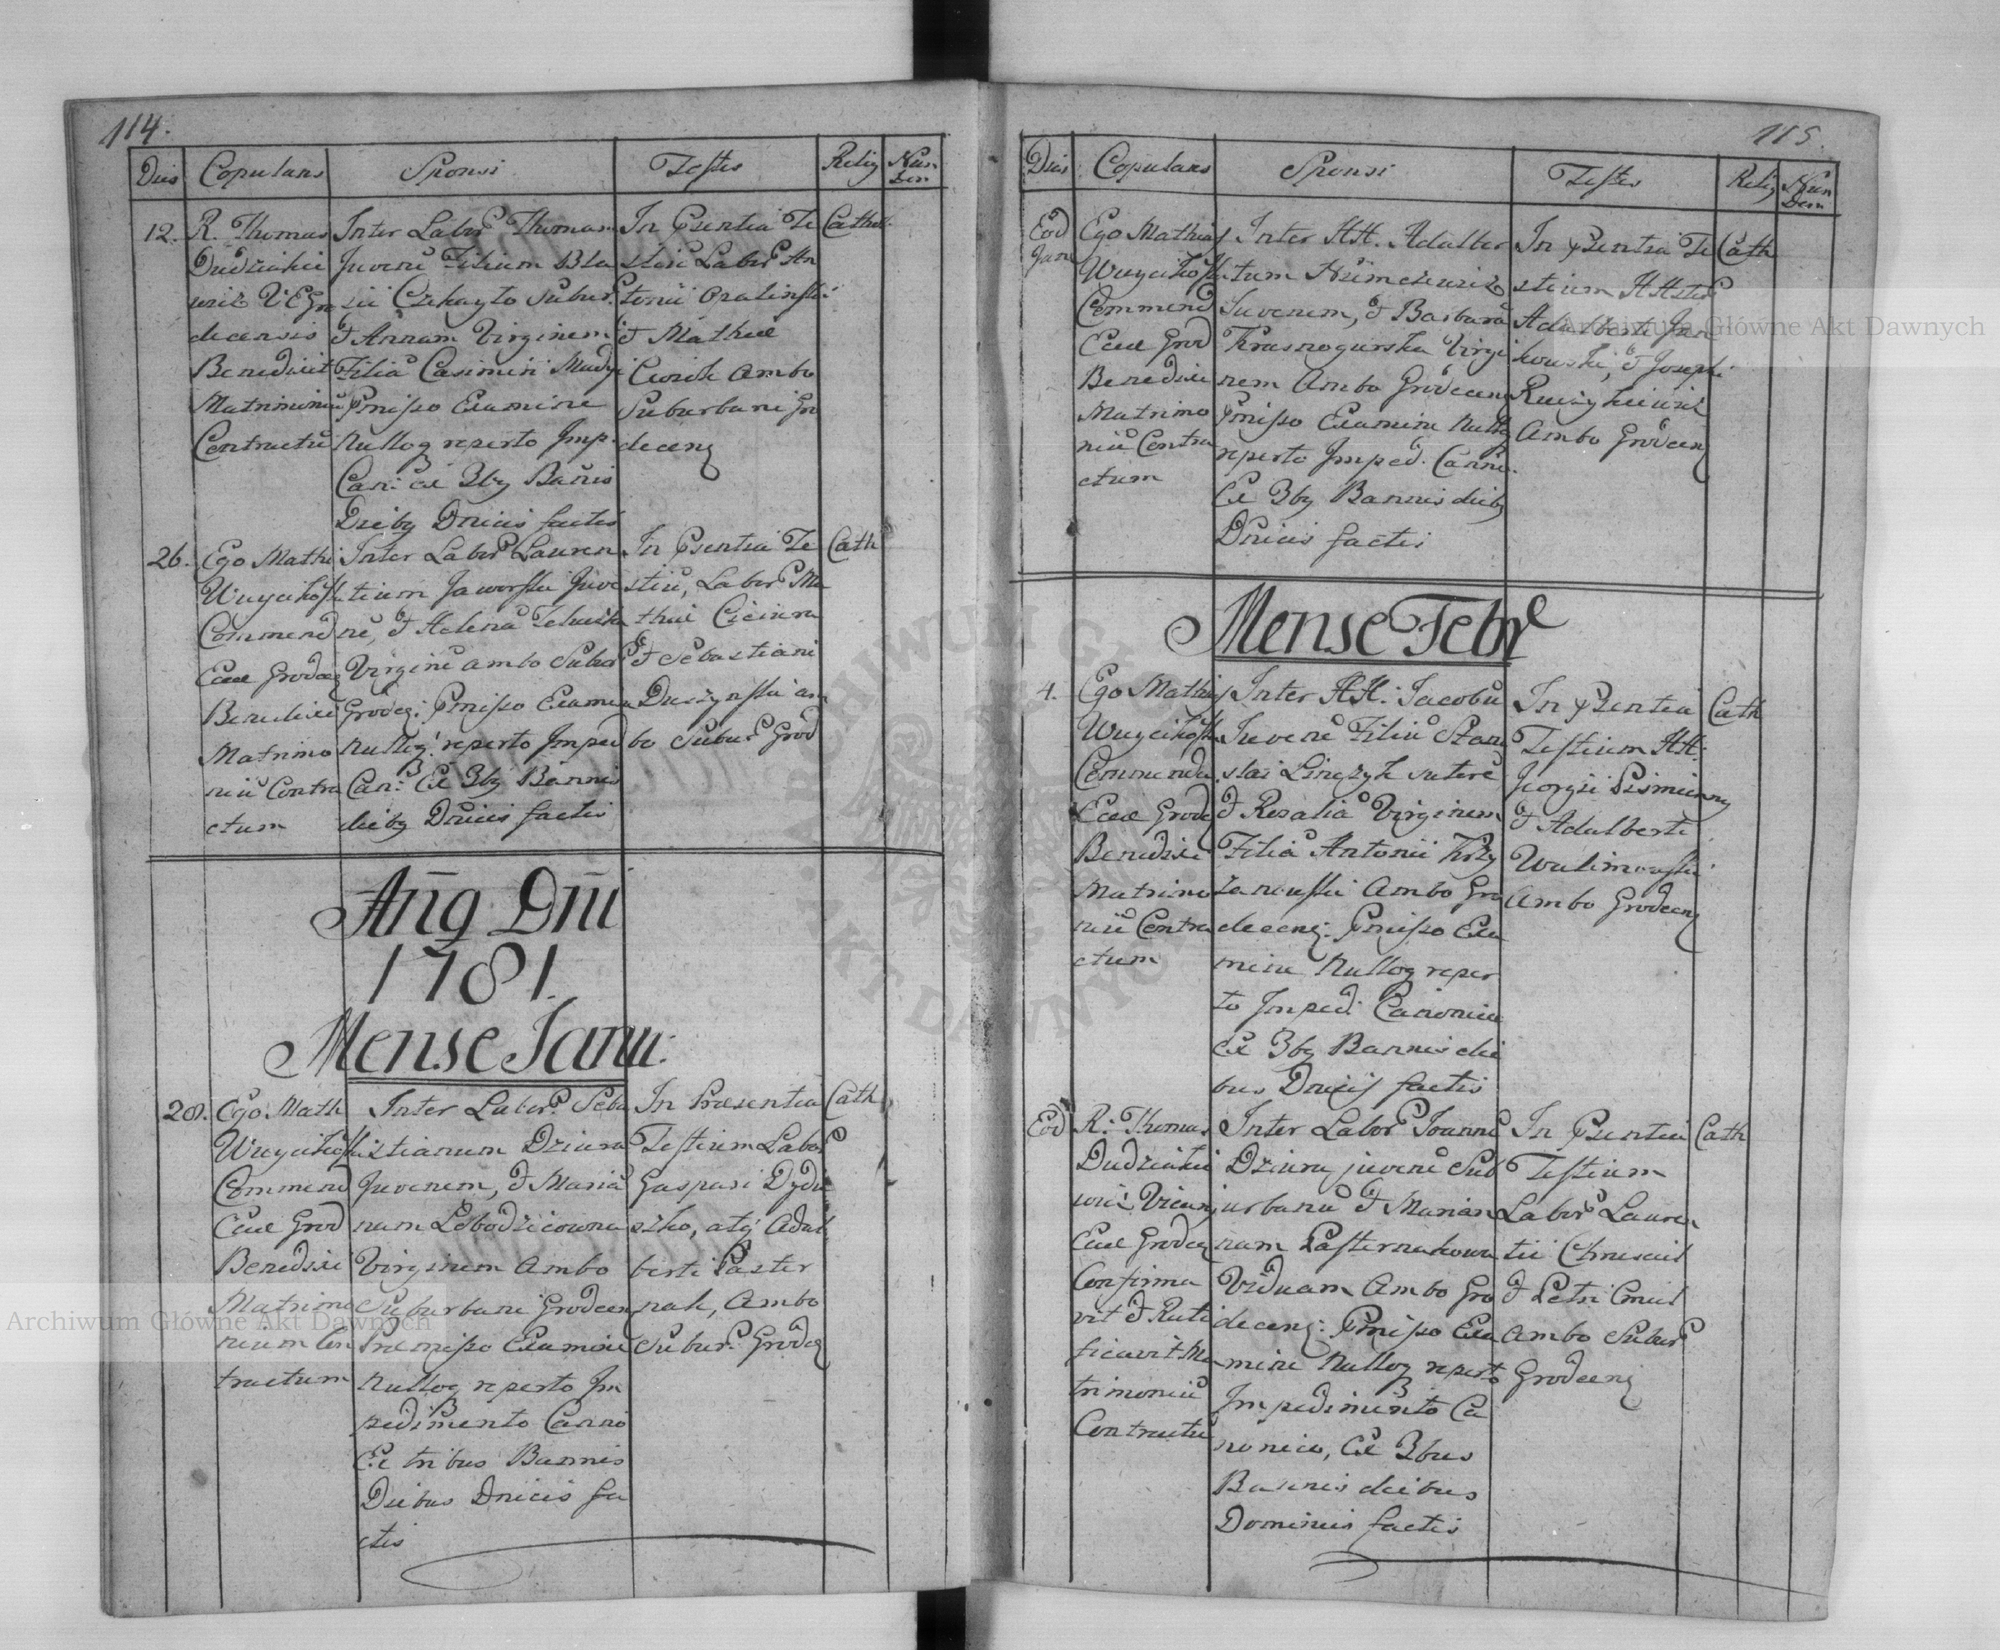 114.
Dies Copulans Sponsi Testes Relig Nun
den
12. R. Thomas
Dudzińkie
wicz V E Gro
decensis
Benedixit
Matrimoniũ
Contractũ
Inter Labor Thomam
Juvenẽ Filium Bla
sii Czekayło Subur
et Annam Virginem
Filiã Casimiri Madyi
Pmisso Examine
Nulloq reperto Imp.
Can: ex 3bq Bañis
Diebq Dnicis factis
In Psentia Te
stiũ Labor An
tonii Opalinski
et Mathiæ
Cwiok Ambo
Suburbani Gro
decenq
Cathol.
26. Ego Mathi
Wuycikoski
Commend
Ecclæ Grodecq
Benedixi
Matrimo
niũ Contra
ctum
Inter Labor Lauren
tium Jaworski Juve
nẽ, et Helenã
Virginẽ ambo Subur
Grodeq: Pmisso Examin
Nulloq: reperto Imped
Can: Ex 3bq Bannis
diebq Dnicis factis
In Psentia Te
stiũ, Labor Ma
thiæ Ciciura
et Sebastiani
Duszynski am
bo Subur Grod
Cath
Añq Dñi
1781.
Mense Janu:
28. Ego Math
Wuycikoski
Commend
Ecclæ Grod
Benedixi
Matrimo
nium Con
tractum
Inter Labor Seba
stianum Dziura
Juvenem, et Mariã
nam Lebodzicowna
Virginem Ambo
Suburbani Grodecenq
Præmisso Examine
Nulloq reperto Im
pedimento Canno
Ex tribus Bannis
Diebus Dnicis fa
ctis
In Præsentia
Testium Labor
Gaspari Dydu
szko, atq Adal
berti Paster
nak, Ambo
Subur Grodeq
Cath
115.
Dies Copulans Sponsi Testes Relig Nun
den
Eod
Jan
Ego Mathias
Wuycikoski
Commend
Ecclæ Grod
Benedixi
Matrimo
niũ Contra
ctum
Inter HH. Adalber
tum Krzimciewicz
Juvenem, et Barbarã
Krasnogurska Virgi
nem Ambo Grodecenq
Pmisso Examine Nulloq
reperto Imped. Canni.
Ex 3bq Bannis diebq
Dnicis factis
In Psentia Te
stium HHstor
Adalberti Jan
kowski, et Josephi
Ambo Grodecenq
Cath
Mense Febr
4. Ego Mathias
Wuycikoski
Commenda
Ecclæ Grodeq
Benedixi
Matrimo
niũ Contra
ctum
Inter HH: Jacobũ
Juvenẽ Filiũ Stani
slai Linczyk sutore
et Rosaliã Virginem
Filiã Antonii Krzy
zanowski Ambo Gro
decenq: Pmisso Exa
mine Nulloq reper
to Imped: Canonico
Ex 3bq Bannis die
bus Dnicis factis
In Psentia
Testium HH:
Georgii Pismienny
et Adalberti
Walimowski
Ambo Grodecenq
Cath
Eod R: Thomas
Dudzinkie
wicz Vicarq
Ecclæ Grodecq
Confirma
vit et Rati
ficavit Ma
trimoniũ
Contractũ
Inter Labor Joannẽ
Dziura juvenẽ Sub
urbanũ et Marian
nam Pasternakowa
Viduam Ambo Gro
decenq: Pmisso Exa
mine Nulloq reperto
Impedimento Ca
nonico, Ex 3bus
Bannis diebus
Dominicis factis
In Psentia
Testium
Labor Lauren
tii Chruscicl
et Petri Cmiel
Ambo Subur
Grodecenq
Cath
Archiwum Główne Akt Dawnych
Archiwum Główne Akt Dawnych